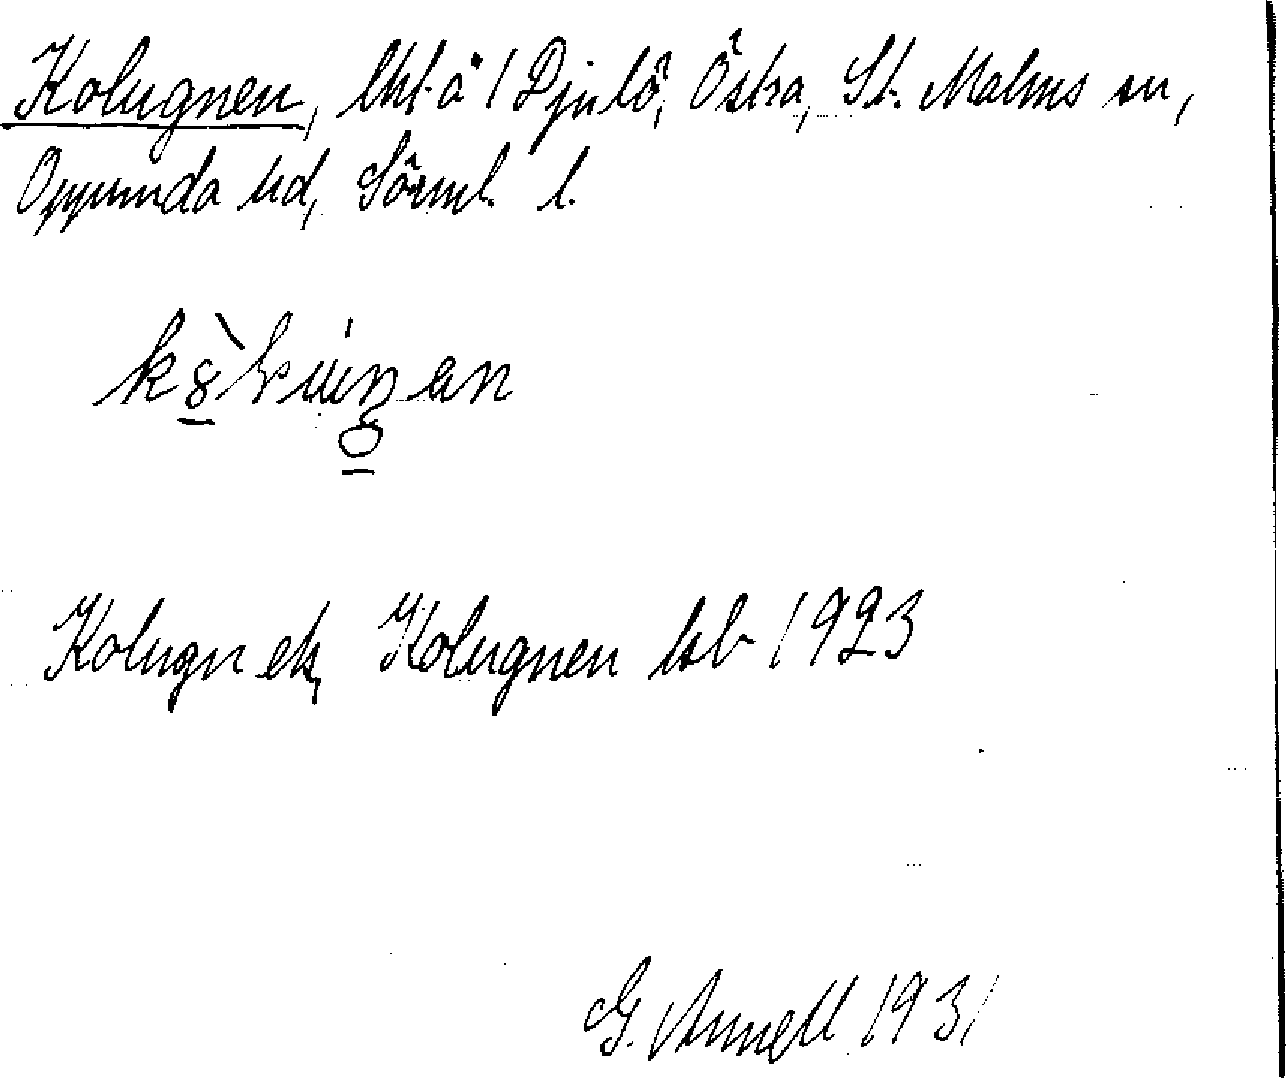 Kolugnen, lht å 1 Djulö, Östra, St. Malms sn,
Oppunda hd, Sörml. l.
Kolugnek, Kolugnen lsb 1923
G. Annell 1931